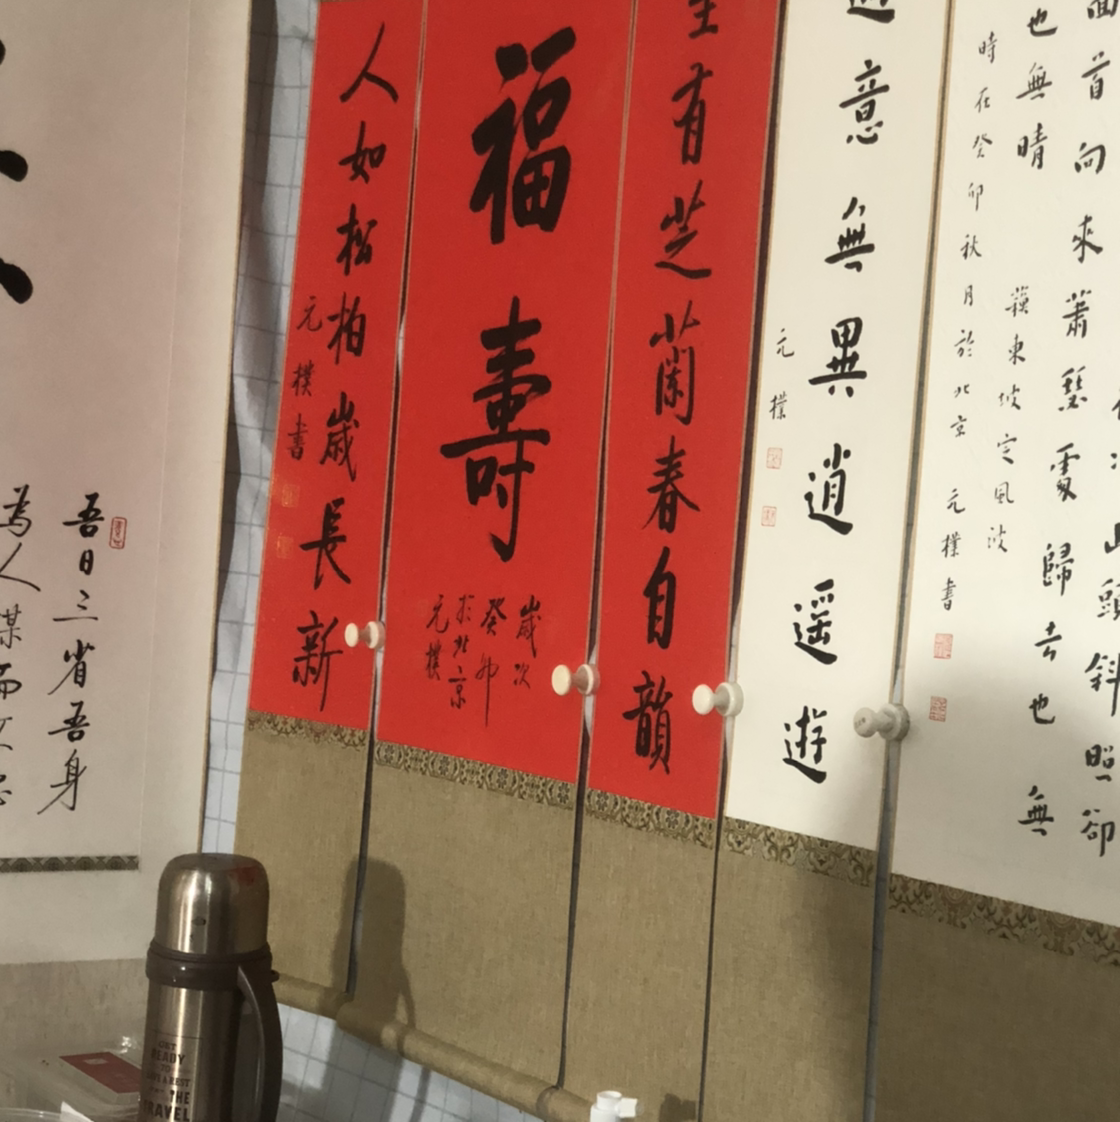 面首向來蕭瑟處歸去也無
也無晴
蘇東坡定風波
時在癸卯秋月於北京 元樸書
意無異逍遥遊
元樸
有芝蘭春自韻
福壽
歲次
癸卯
於北京
元樸
人如松柏歲長新
元樸書
吾日三省吾身
為人謀而不忠
山頭斜照卻
GET
READY
THE
TRAVEL